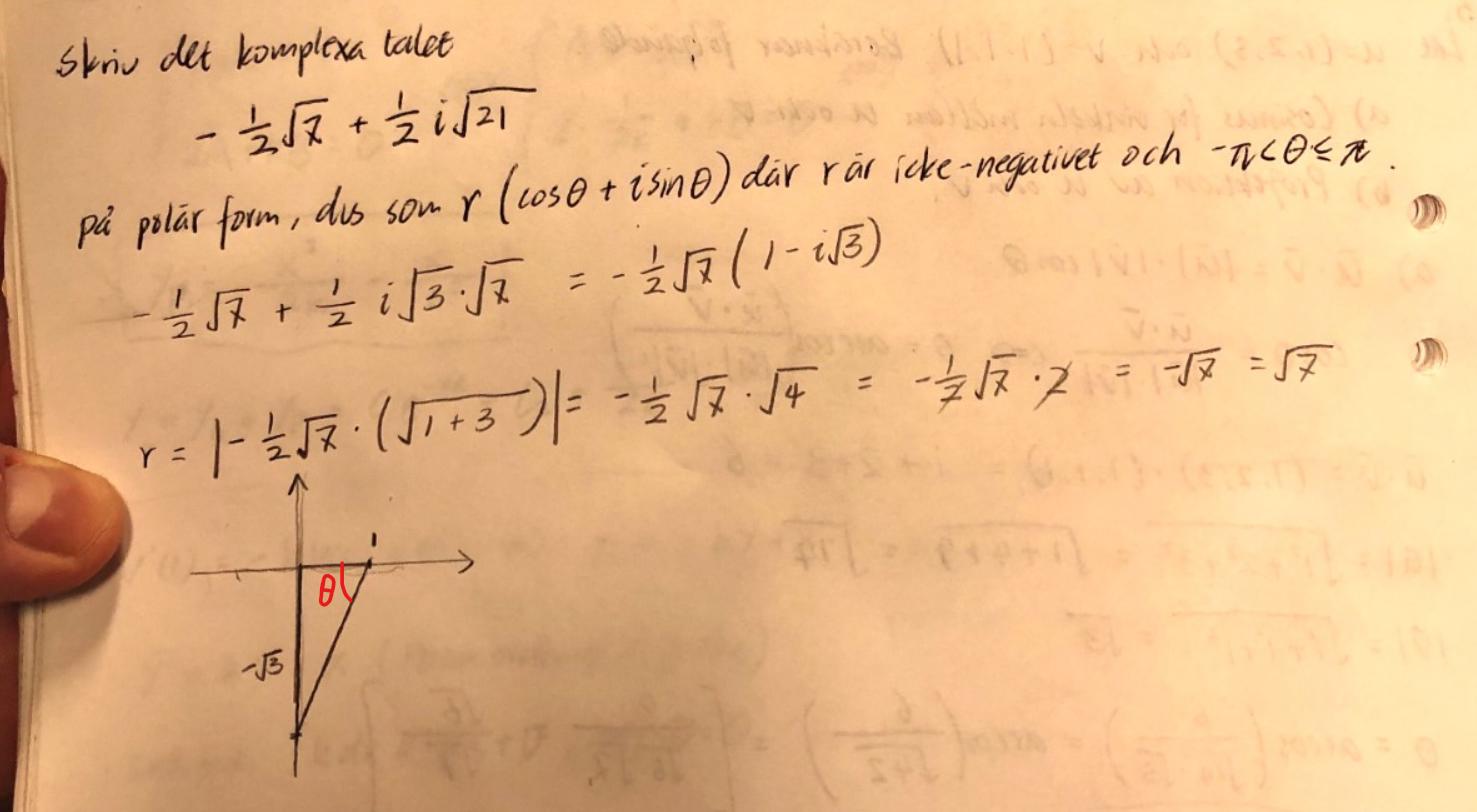 Skriv det komplexa talet
- 1/2 √7 + 1/2 i√21
på polär form, dvs som r (cosθ + i sinθ) där r är icke-negativet och -π < θ ≤ π.
- 1/2 √7 + 1/2 i√3·√7 = - 1/2 √7 ( 1 - i√3)
r = |- 1/2 √7 · (√1+3)| = - 1/2 √7 · √4 = - 1/2 √7 · 2 = -√7 = √7
1
θ
-√3